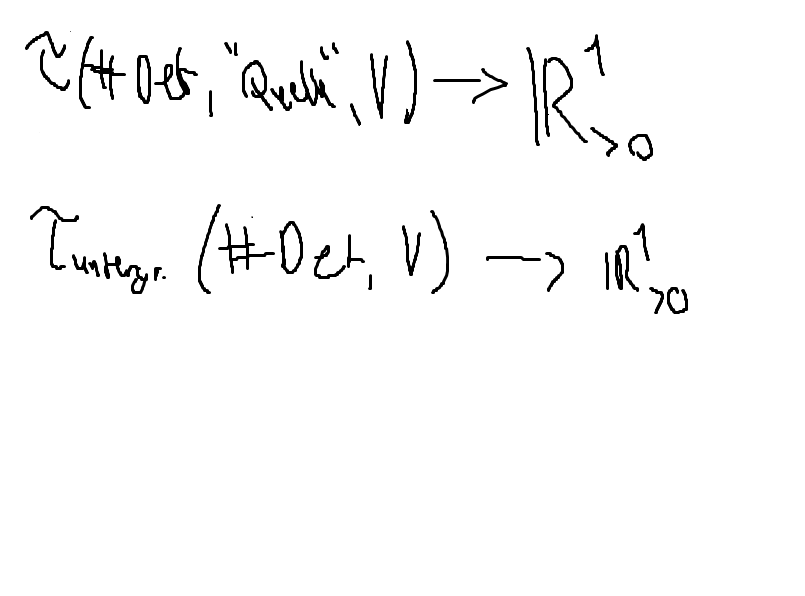 τ(#Det, "Quelle", V) → ℝ¹_{>0}
τ_{untergr.} (#Det, V) → ℝ¹_{>0}